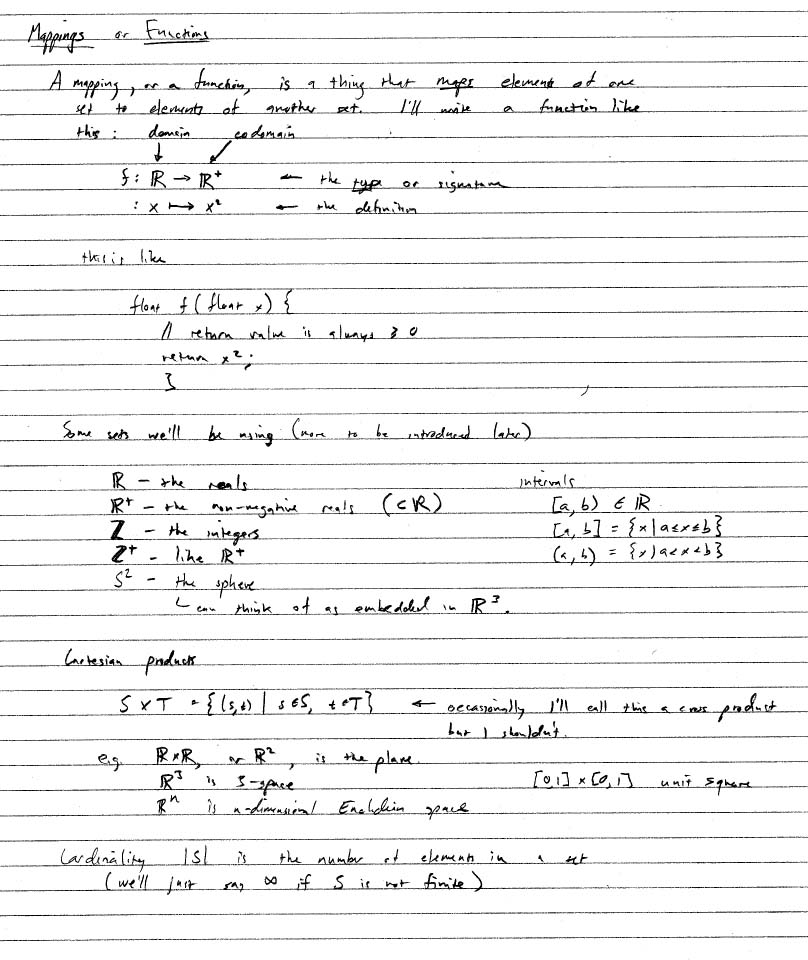 Mappings or Functions
A mapping, or a function, is a thing that maps elements of one
set to elements of another set. I'll write a function like
this: domain codomain
f : ℝ → ℝ⁺ ← the type or signature
: x ↦ x² ← the definition
this is like
float f(float x) {
// return value is always ≥ 0
return x²;
}
Some sets we'll be using (more to be introduced later)
ℝ - the reals
intervals
ℝ⁺ - the non-negative reals (⊂ ℝ)
[a, b) ∈ ℝ
ℤ - the integers
[a, b] = {x | a ≤ x ≤ b}
ℤ⁺ - like ℝ⁺
(a, b) = {x | a < x < b}
S² - the sphere
└ can think of as embedded in ℝ³.
Cartesian products
S × T = {(s,t) | s ∈ S, t ∈ T} ← occasionally I'll call this a cross product
but I shouldn't.
e.g. ℝ×ℝ, or ℝ², is the plane.
ℝ³ is 3-space
[0,1] × [0,1] unit square
ℝⁿ is n-dimensional Euclidian space
Cardinality |S| is the number of elements in a set
(we'll just say ∞ if S is not finite)